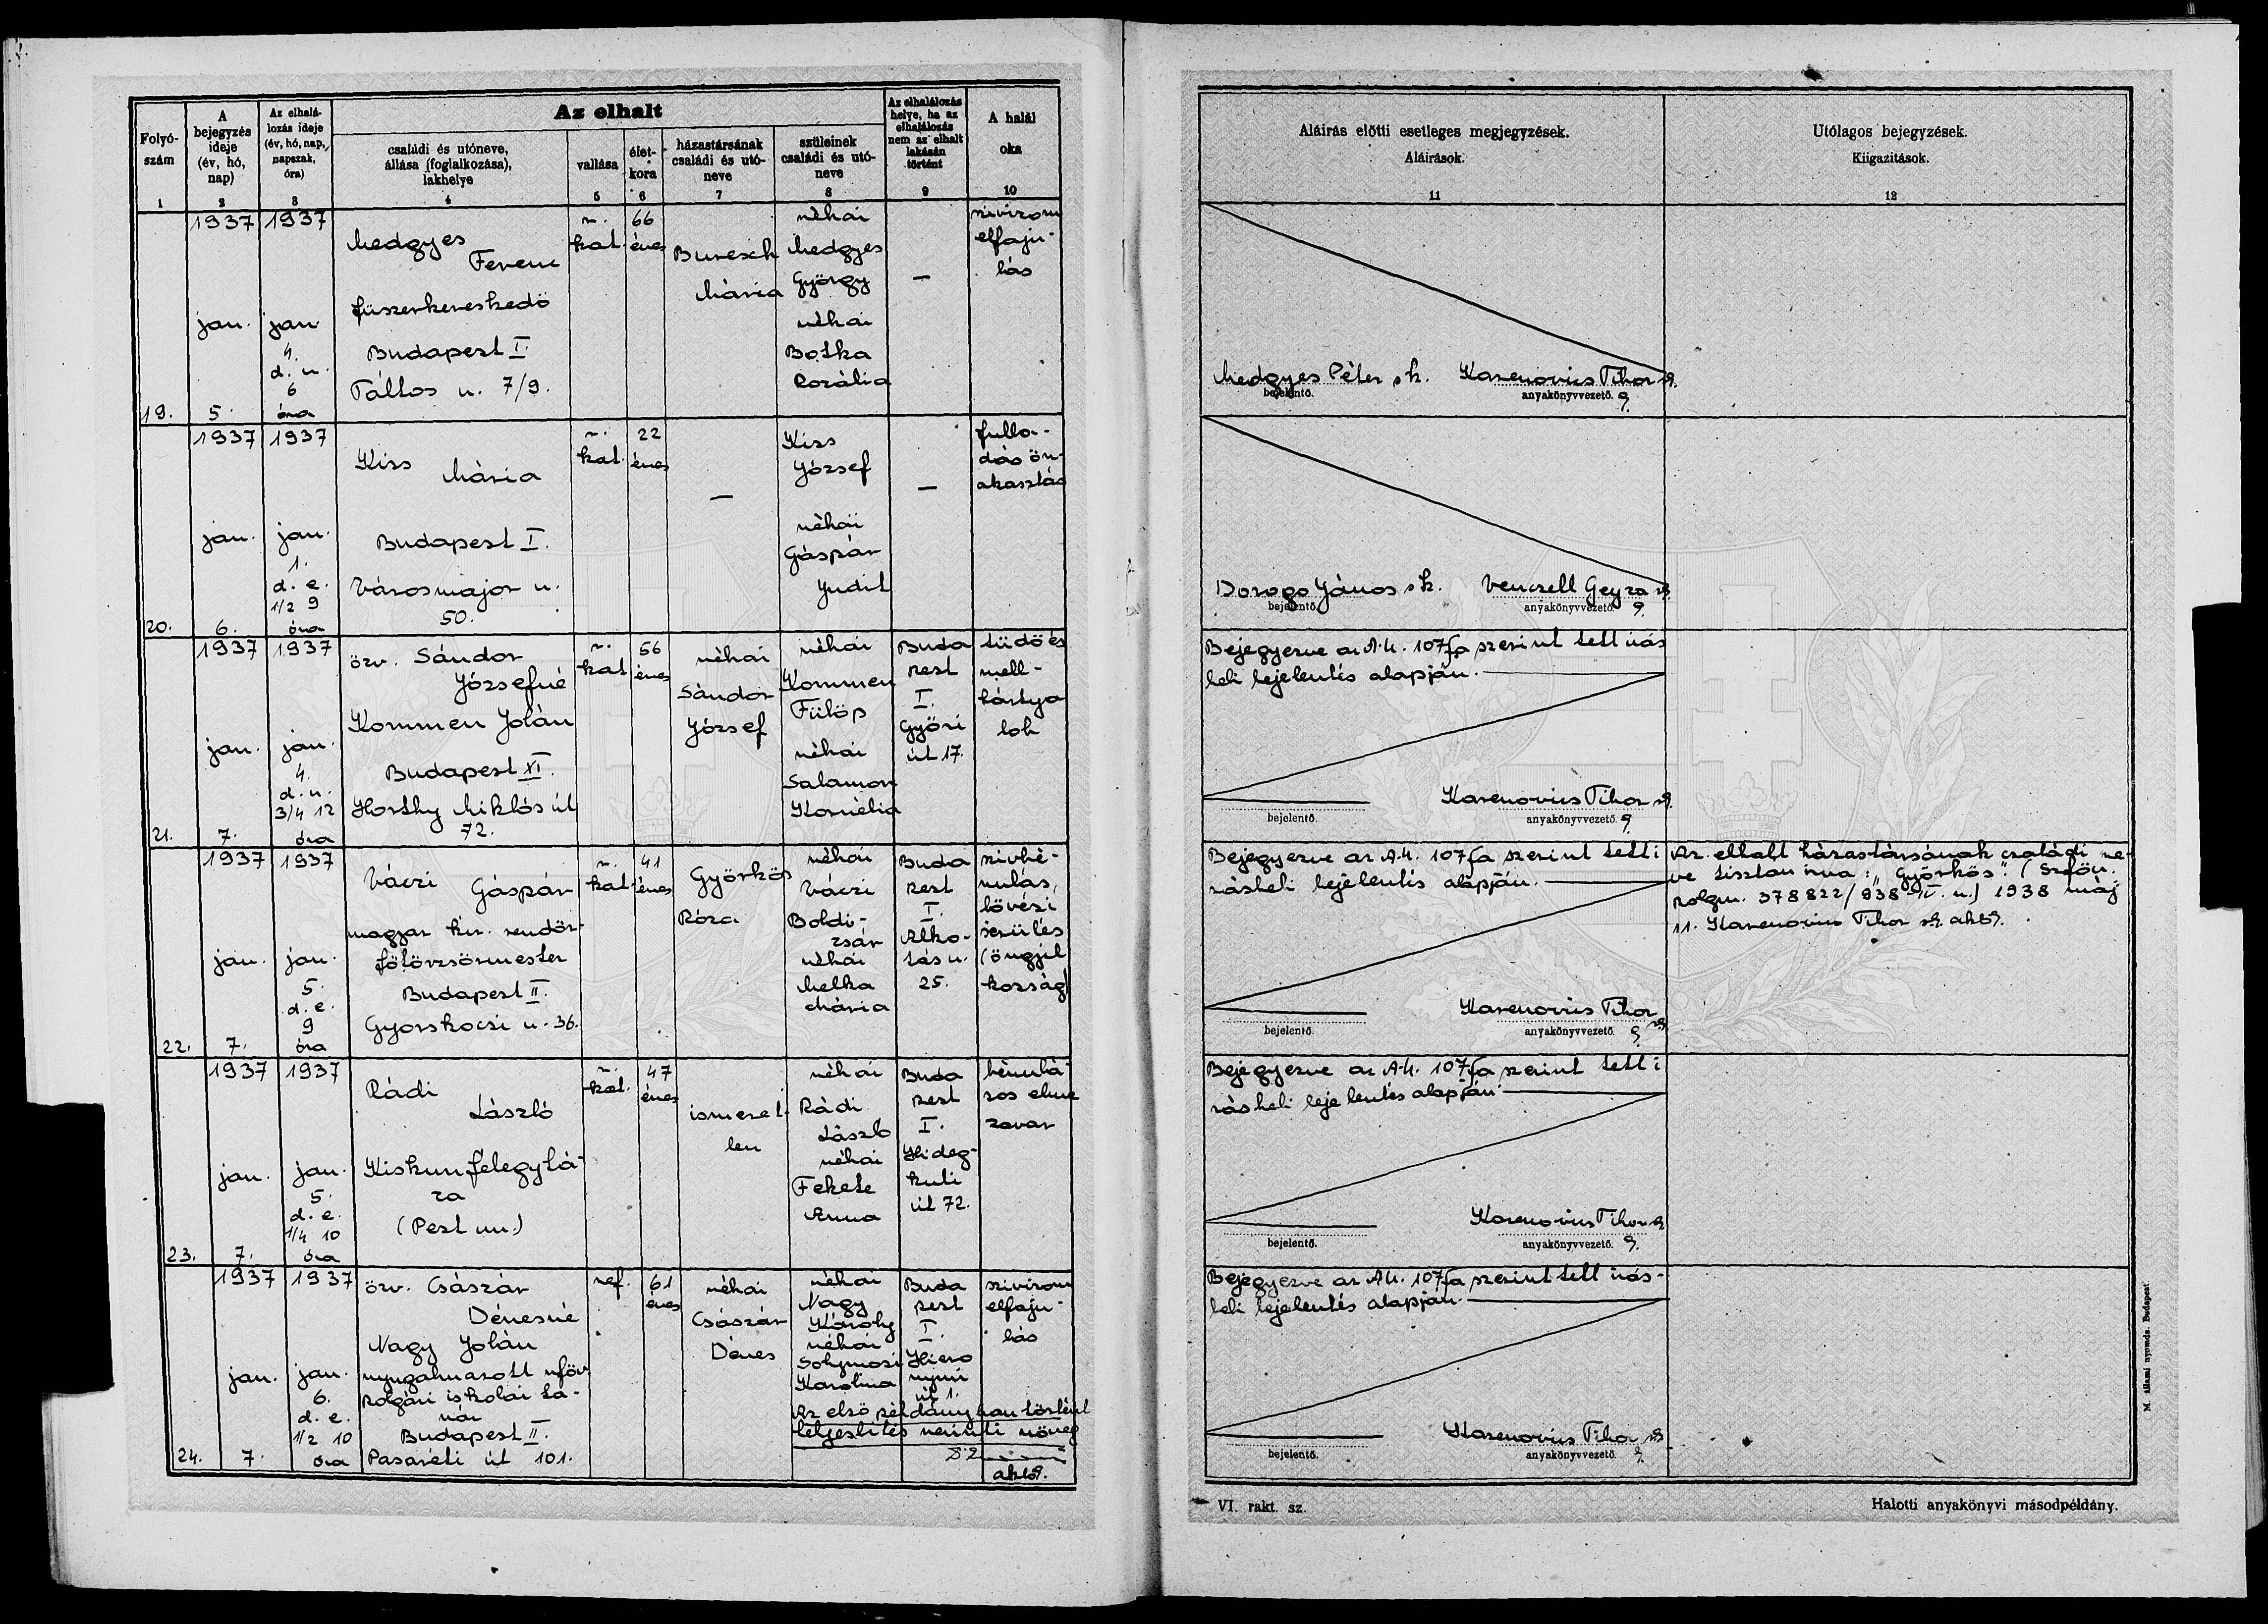 Folyó-
szám
1
A
bejegyzés
ideje
(év, hó,
nap)
2
Az elhalá-
lozás ideje
(év, hó, nap,
napszak,
óra)
3
Az elhalt
családi és utóneve,
állása (foglalkozása),
lakhelye
4
vallása
5
élet-
kora
6
házastársának
családi és utó-
neve
7
szüleinek
családi és utó-
neve
8
Az elhalálozás
helye, ha az
elhalálozás
nem az elhalt
lakásán
történt
9
A halál
oka
10
Aláírás előtti esetleges megjegyzések.
Aláírások.
11
Utólagos bejegyzések.
Kiigazítások.
12
19.
1937
jan.
5.
1937
jan
4.
d. u.
6
óra
Medgyes
Ferenc
fűszerkereskedő
Budapest I.
Táltos u. 7/9.
r.
kat.
66
éves
Buresch
Mária
néhai
Medgyes
György
néhai
Botka
Rozália
—
szívizom
elfaju-
lás
Medgyes Péter sk. Karenovics Tibor sk.
bejelentő. anyakönyvvezető.
20.
1937
jan.
6.
1937
jan.
1.
d. e.
1/2 9
óra
Kiss
Mária
Budapest I.
Városmajor u.
50.
r.
kat.
22
éves
—
Kiss
József
néhai
Gáspár
Judit
—
fulla-
dás ön-
akasztás
Dorogo János sk. Venczell Geyza sk.
bejelentő. anyakönyvvezető.
21.
1937
jan.
7.
1937
jan.
4.
d. u.
3/4 12
óra
özv. Sándor
Józsefné
Kommen Jolán
Budapest XI.
Horthy Miklós út
72.
r.
kat
56
éves
néhai
Sándor
József
néhai
Kommen
Fülöp
néhai
Salamon
Kornélia
Buda
pest
I.
Győri
út 17.
tüdő és
mell-
hártya
lob
Bejegyezve az A.U. 107§a szerint tett írás
beli bejelentés alapján.
Karenovics Tibor sk.
bejelentő. anyakönyvvezető.
22.
1937
jan.
7.
1937
jan.
5.
d. e.
9
óra
Váczi
Gáspár
magyar kir. rendőr-
főtörzsőrmester
Budapest II.
Gyorskocsi u. 36.
r.
kat.
41
éves
Györkös
Róza
néhai
Váczi
Boldi-
zsár
néhai
Melka
Mária
Buda
pest
I.
Alko-
tás u.
25.
szívbé-
nulás,
lövési
sérülés
(öngyil
kosság)
Bejegyezve az A.U. 107§a szerint tett í
rásbeli bejelentés alapján.
Az elhalt házastársának családi ne-
ve tisztán írva: „Györkös". (Szfőv.
polgm. 378822/938-IV. u.) 1938 máj
11. Karenovics Tibor sk. akv.
Karenovics Tibor
sk.
bejelentő. anyakönyvvezető.
23.
1937
jan.
7.
1937
jan.
5.
d. e.
1/4 10
óra
Rádi
László
Kiskunfélegyhá-
za
(Pest vm.)
r.
kat.
47
éves
ismeret-
len
néhai
Rádi
László
néhai
Fekete
Anna
Buda
pest
I.
Hideg-
kuti
út 72.
bénulá-
sos elme
zavar
Bejegyezve az A.U. 107§a szerint tett í
rásbeli bejelentés alapján
Karenovics Tibor sk
bejelentő. anyakönyvvezető.
24.
1937
jan.
7.
1937
jan.
6.
d. e.
1/2 10
óra
özv. Császár
Dénesné
Nagy Jolán
nyugalmazott szföv.
polgári iskolai ta-
nár
Budapest II.
Pasaréti út 101.
ref.
61
éves
néhai
Császár
Dénes
néhai
Nagy
Károly
néhai
Solymosi
Karolina
Buda
pest
I.
Hiero
nymi
út 1.
szívizom
elfaju-
lás
Az első példányban történt
teljesítés szerinti szöveg
akv.
Bejegyezve az A.U. 107§a szerint tett írás-
beli bejelentés alapján.
Karenovics Tibor sk
bejelentő. anyakönyvvezető.
VI. rakt. sz.
Halotti anyakönyvi másodpéldány.
M. állami nyomda. Budapest